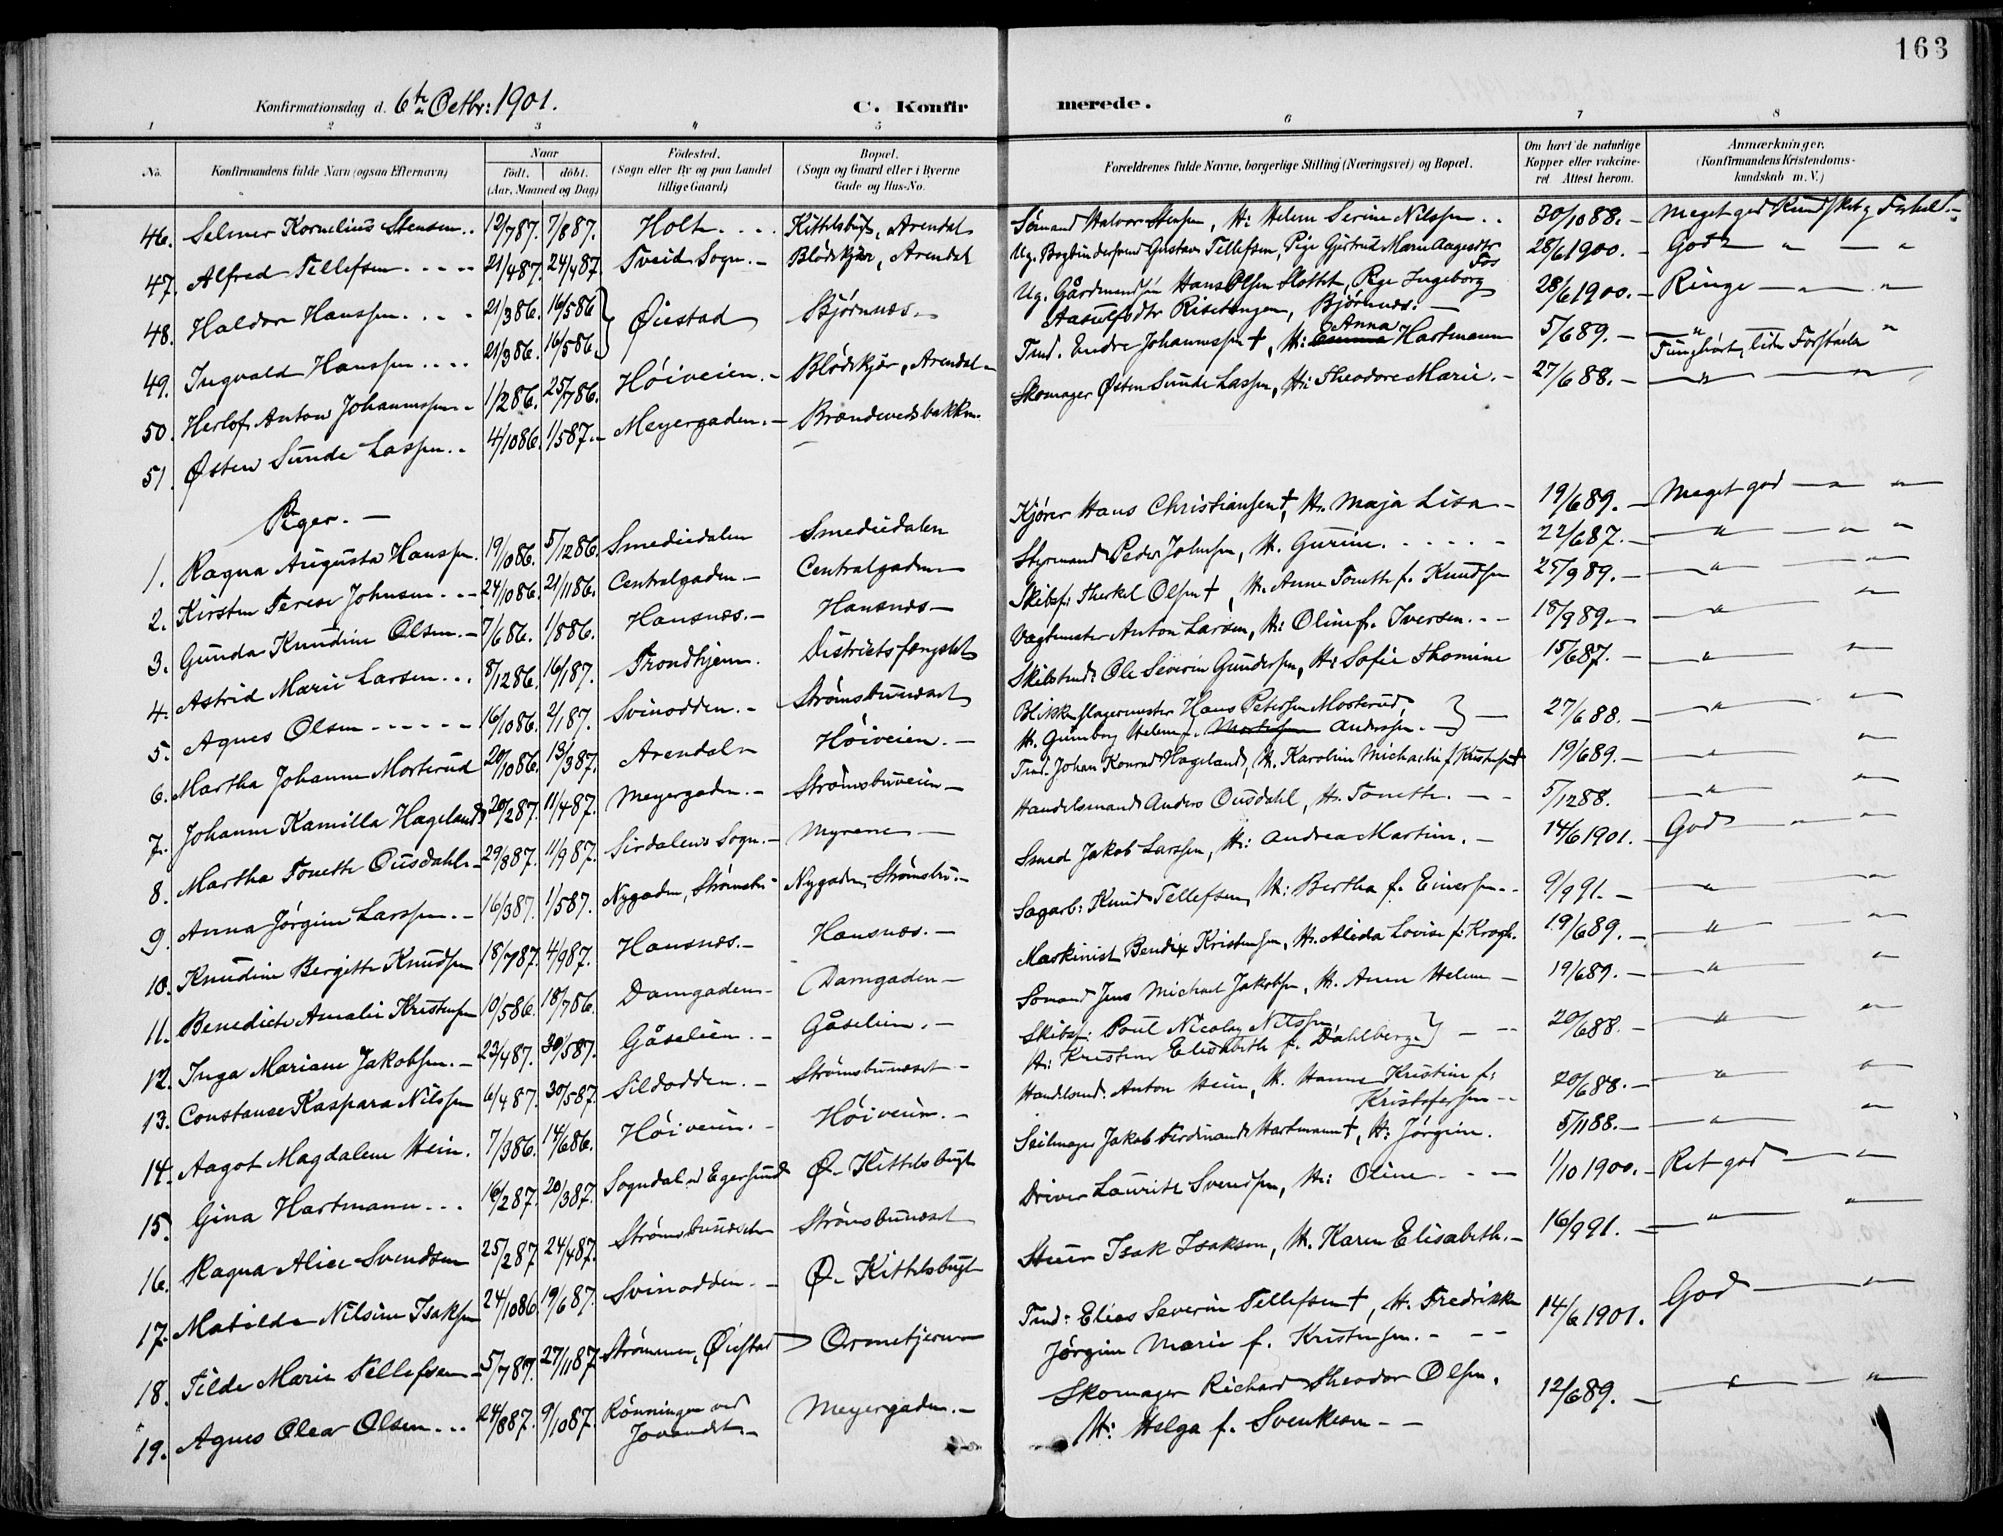 163
Konfirmationsdag d. 6te Octbr: 1901. C. Konfirmerede.
1 2 3 4 5 6 7 8
No. Konfirmandens fulde Navn (ogsaa Efternavn) Naar født. døbt. (Aar, Maaned og Dag) Fødested. (Sogn eller By og paa Landet tillige Gaard) Bopæl. (Sogn og Gaard eller i Byerne Gade og Hus-No. Forældrenes fulde Navne, borgerlige Stilling (Næringsvei) og Bopæl. Om havt de naturlige Kopper eller vakcineret. Attest herom. Anmærkninger. (Konfirmandens Kristendomskundskab m. V.)
46. Selmer Kornelius Stensen.. 12/7 87. 7/8 87. Holt.... Kittelsbugt, Arendal Sømand Halvor Stensen, H: Helene Serine Nilssen.. 30/10 88.— Meget god Kundskab og Forhold.—
47. Alfred Tellefsen..... 21/4 87. 24/4 87. Tveid Sogn.— Blødekjær, Arendal Ug. Bogbindersvend Gustav Tellefsen, Pige Gjertrud Maren Aagesdtr Fos 28/6 1900.— God — " — "
48. Haldor Hanssen.... 21/3 86. 16/5 86 Øiestad Bjørnnæs. Ug. Gårdmandsøn Hans Olsen Slottet, Pige Ingeborg Aasulfsdtr Risetangen, Bjørnnæs.— 28/6 1900.— Ringe — " — "
49. Ingvald Hanssen.... 21/3 86. 16/5 86.
50. Herlof Anton Johannessen.. 1/2 86. 25/7 86. Høiveien.— Blødekjær, Arendal— Tmd. Endre Johannessen †, H: Anna Hartmann 5/6 89.— — " — Tunghørt, liden Forstand "
51. Østen Sunde Lassen.. 4/10 86. 1/5 87.— Meyergaden.— Brændevedsbakken. Skomager Østen Sunde Lassen, H: Theodore Marie.— 27/6 88.— — " — "
Piger.—
1. Ragna Augusta Hanssen. 19/10 86. 5/12 86. Smediedalen Smediedalen Kjører Hans Christiansen †, H. Maja Lisa — 19/6 89.— Meget god — " — "
2. Kirsten Terese Johnsen... 24/10 86. 21/11 86. Centralgaden— Centralgaden— Styrmand Peder Johnsen, H. Gurine..... 22/6 87.— — " — " — "
3. Gunda Knudine Olsen.— 7/6 86. 1/8 86. Hansnæs.— Hansnæs— Skibsf: Therkel Olsen †, H. Anne Tonette f. Knudsen 25/9 89.— — " — "
4. Astrid Marie Larsen... 8/12 86. 16/1 87. Trondhjem. Districtsfængslet Vagtmester Anton Larsen, H: Oline f. Iversen... 18/9 89.— — " — "
5. Agnes Olsen — — — — 16/10 86. 2/1 87. Svinodden.— Strømsbunæset Skibstmd: Ole Severin Gundersen, H: Sofie Thomine 15/6 87.— — " — "
6. Martha Johanne Mosterud 20/10 86. 13/3 87. Arendal— Høiveien.— Blikkenslagermester Hans Petersen Mosterud, H. Gunborg Helene f. Andersen.— 27/6 88.— — " — "
7. Johanne Kamilla Hageland 20/2 87. 11/4 87. Meyergaden.— Strømsbuveien— Tmd. Johan Konrad Hageland, H. Karoline Michaeline f. Kristofersd 19/6 89.— — " — "
8. Martha Tonette Ousdahl.— 29/3 87. 11/9 87. Sirdalens Sogn.— Myrene— Handelsmand Anders Ousdahl, H. Tonette.— — 5/12 88. — " — "
9. Anna Jørgine Larssen.— 16/3 87. 1/5 87. Nygaden, Strømsbu Nygaden, Strømsbu.— Smed Jakob Larssen, H: Andrea Martine.— 14/6 1901.— God — " — "
10. Knudine Bergitte Knudsen 18/7 87. 4/9 87. Hansnæs.— Hansnæs.— Sagarb: Knud Tellefsen, H: Bertha f. Einersen.. 9/9 91.— — " — "
11. Benedicte Amalie Kristensen 10/5 86. 18/7 86. Damgaden— Damgaden— Maskinist Bendix Kristensen, H. Aleda Lovise f. Krogh. 19/6 89.— — " — "
12. Inga Mariane Jakobsen.— 23/4 87. 30/5 87. Gåselien.— Gåselien.— Sømand Jens Michael Jakobsen, H. Anne Helene — 19/6 89.— — " — "
13. Constanse Kaspara Nilssen 6/4 87. 30/5 87. Sildodden.— Strømsbunæset— Skibsf: Poul Nicolay Nilssen H: Kristine Elisabeth f. Dahlberg — 20/6 88.— — " — "
14. Aagot Magdalene Hein. 7/3 86. 14/6 86. Høiveien.— Høiveien.— Handelsmd: Anton Hein, H. Hanne Kristine f: Kristofersen— 20/6 88.— — " — "
15. Gina Hartmann... 16/2 87. 20/3 87. Sogndal v/ Egersund Ø. Kittelsbugt Seilmager Jakob Ferdinand Hartmann †, H: Jørgine. 5/11 88.— — " — "
16. Ragna Alice Svendsen 25/2 87 24/4 87. Strømsbunæset Strømsbunæset Driver Lauritz Svendsen, H: Oline — — 1/10 1900.— Ret god — " —
17. Matilde Nilsine Isaksen 24/10 86. 19/6 87. Svinodden.— Ø. Kittelsbugt Stuer Isak Isaksen, H. Karen Elisabeth.— 16/9 91.— — " — "
18. Tilde Marie Tellefsen— 5/7 87. 27/11 87 Strømmen, Øiestad Ormetjern— Tmd: Elias Severin Tellefsen †, H. Fredrikke Jørgine Marie f. Kristensen.— — 14/6 1901. God — "
19. Agnes Olea Olsen... 24/8 87. 9/10 87. Rønningen ved Jovandet.— Meyergaden.— Skomager Richard Theodor Olsen. H: Helga f. Svenkesen — — 12/6 89.— — " — "